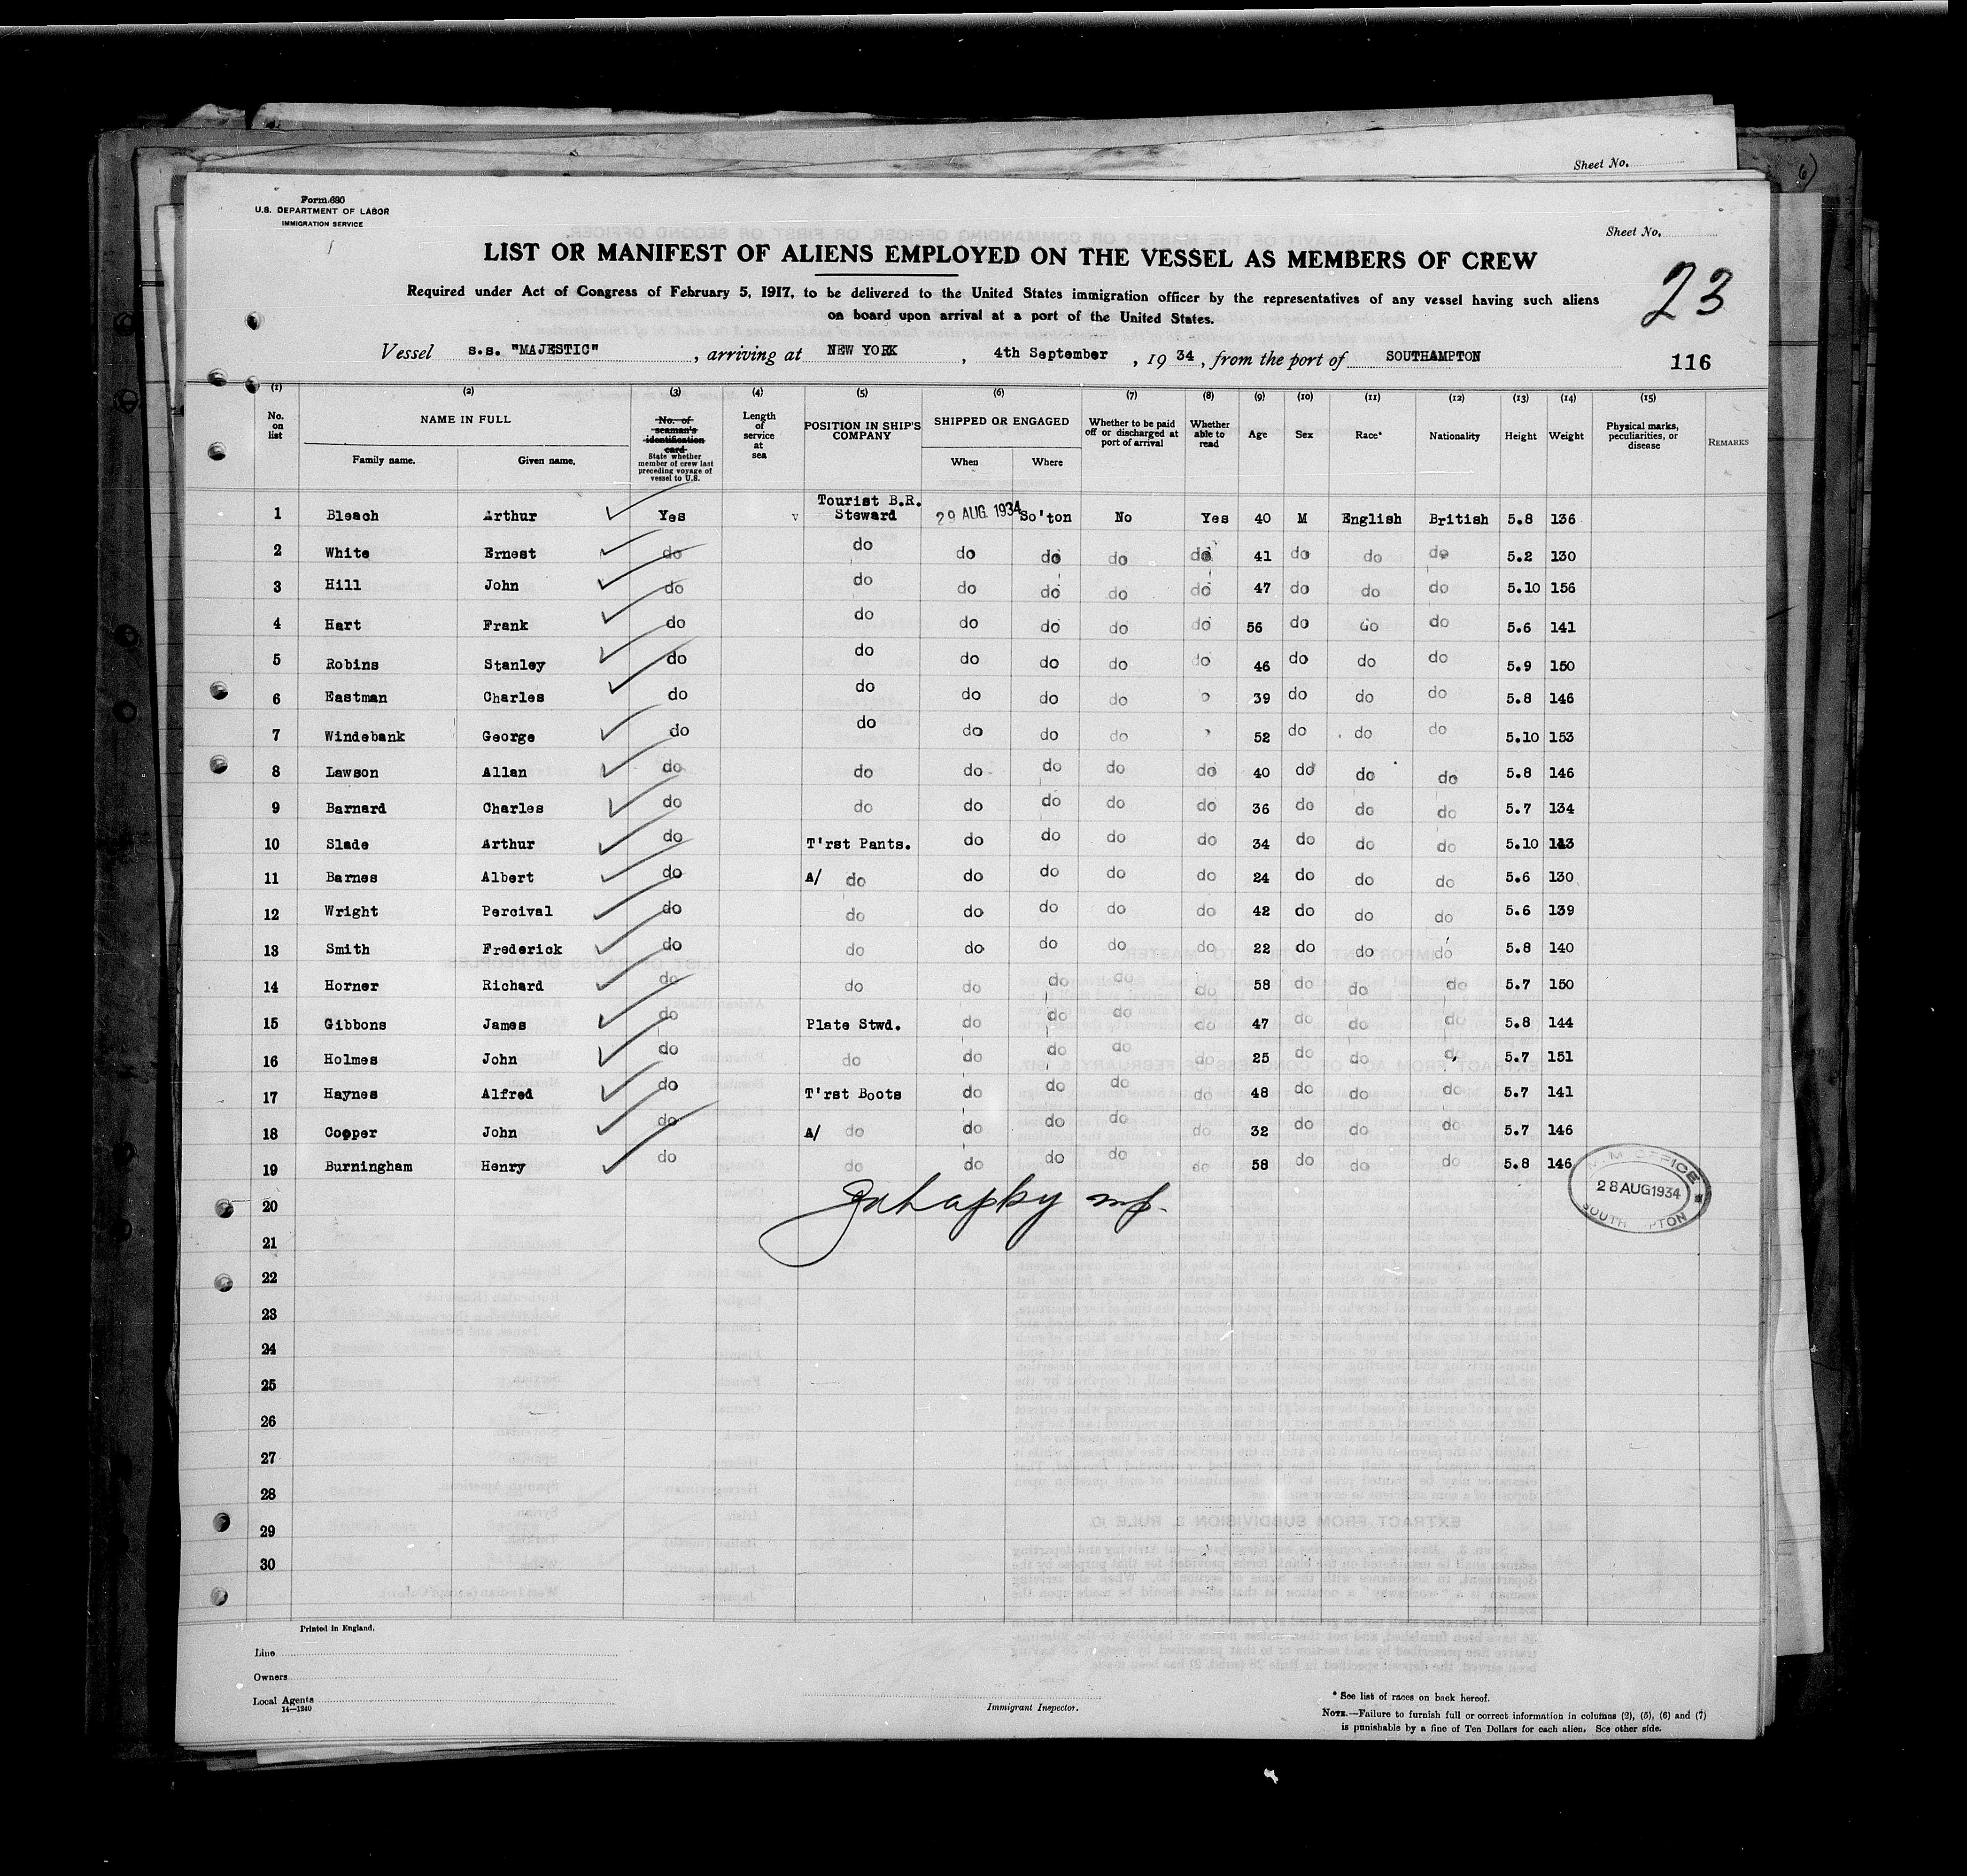 Sheet No.
Form 680
U.S. DEPARTMENT OF LABOR
IMMIGRATION SERVICE
Sheet No.
LIST OR MANIFEST OF ALIENS EMPLOYED ON THE VESSEL AS MEMBERS OF CREW
23
Required under Act of Congress of February 5, 1917, to be delivered to the United States immigration officer by the representatives of any vessel having such aliens
on board upon arrival at a port of the United States.
Vessel s.s. "MAJESTIC", arriving at NEW YORK, 4th September, 1934, from the port of SOUTHAMPTON
116
(1) (2) (3) (4) (5) (6) (7) (8) (9) (10) (11) (12) (13) (14) (15)
No. on list NAME IN FULL Family name. Given name. No. of seaman's identification card State whether member of crew last preceding voyage of vessel to U.S. Length of service at sea POSITION IN SHIP'S COMPANY SHIPPED OR ENGAGED When Where Whether to be paid off or discharged at port of arrival Whether able to read Age Sex Race* Nationality Height Weight Physical marks, peculiarities, or disease REMARKS
1 Bleach Arthur Yes v Tourist B.R. Steward 29 AUG. 1934 So'ton No Yes 40 M English British 5.8 136
2 White Ernest do do do do do do 41 do do do 5.2 130
3 Hill John do do do do do do 47 do do do 5.10 156
4 Hart Frank do do do do do do 56 do do do 5.6 141
5 Robins Stanley do do do do do do 46 do do do 5.9 150
6 Eastman Charles do do do do do 39 do do do 5.8 146
7 Windebank George do do do do do 52 do do do 5.10 153
8 Lawson Allan do do do do do do 40 do do do 5.8 146
9 Barnard Charles do do do do do do 36 do do do 5.7 134
10 Slade Arthur do T'rst Pants. do do do do 34 do do do 5.10
11 Barnes Albert do A/ do do do do do 24 do do do 5.6 130
12 Wright Percival do do do do do do 42 do do do 5.6 139
13 Smith Frederick do do do do do do 22 do do do 5.8 140
14 Horner Richard do do do do do do 58 do do do 5.7 150
15 Gibbons James do Plate Stwd. do do do do 47 do do do 5.8 144
16 Holmes John do do do do do do 25 do do do 5.7 151
17 Haynes Alfred do T'rst Boots do do do do 48 do do do 5.7 141
18 Cooper John do A/ do do do do do 32 do do do 5.7 146
19 Burningham Henry do do do do do do 58 do do do 5.8 146
20
21
22
23
24
25
26
27
28
29
30
OFFICE
28 AUG 1934
Printed in England.
Line
Owners
Local Agents
14—1240
Immigrant Inspector.
* See list of races on back hereof.
NOTE.—Failure to furnish full or correct information in columns (2), (5), (6) and (7)
is punishable by a fine of Ten Dollars for each alien. See other side.